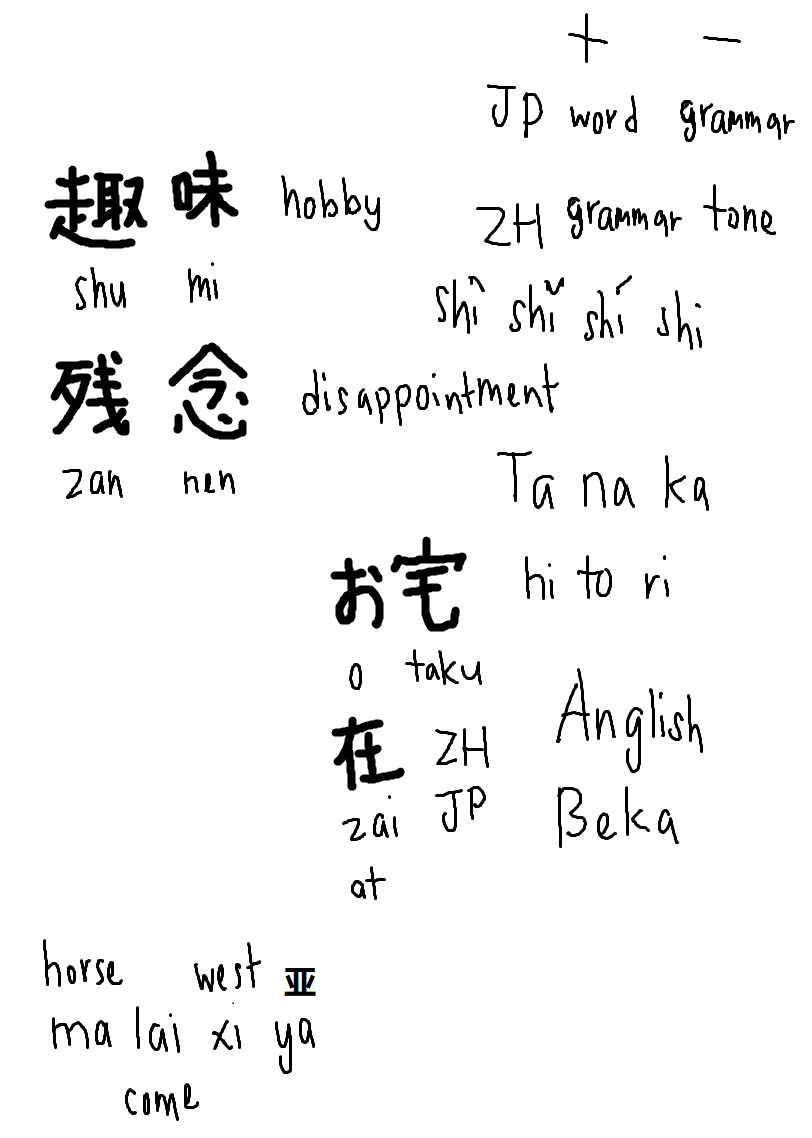 + −
JP word grammar
趣味 hobby
ZH grammar tone
shu mi
shì shǐ shí shi
残念 disappointment
zan nen
Ta na ka
お宅
hi to ri
o taku
Anglish
在 ZH
zai JP
Beka
at
horse west 亚
ma lai xi ya
come